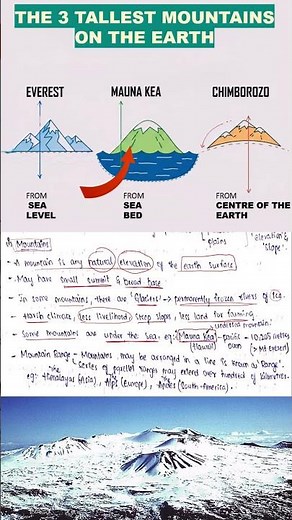 THE 3 TALLEST MOUNTAINS
ON THE EARTH
EVEREST
MAUNA KEA
CHIMBOROZO
FROM
SEA
LEVEL
FROM
SEA
BED
FROM
CENTRE OF THE
EARTH
plains
elevation &
slope".
Mountains
- A mountain is any natural elevation of the earth surface
- May have small summit & broad base
- In some mountains, there are "Glaciers" → permanently frozen rivers of ice.
- Harsh climate, less livelihood, steep slops, less land for farming.
undersea mountain.
- Some mountains are under the sea eg: Mauna Kea - pacific - 10,205 metres
(Hawaii) ocean (> Mt Everest)
- Mountain Range - Mountains may be arranged in a line is known as "Range".
"The series of parallel range may extend over hundred of kilometers.
eg: Himalayas (Asia), Alps (Europe), Andes (South-America).